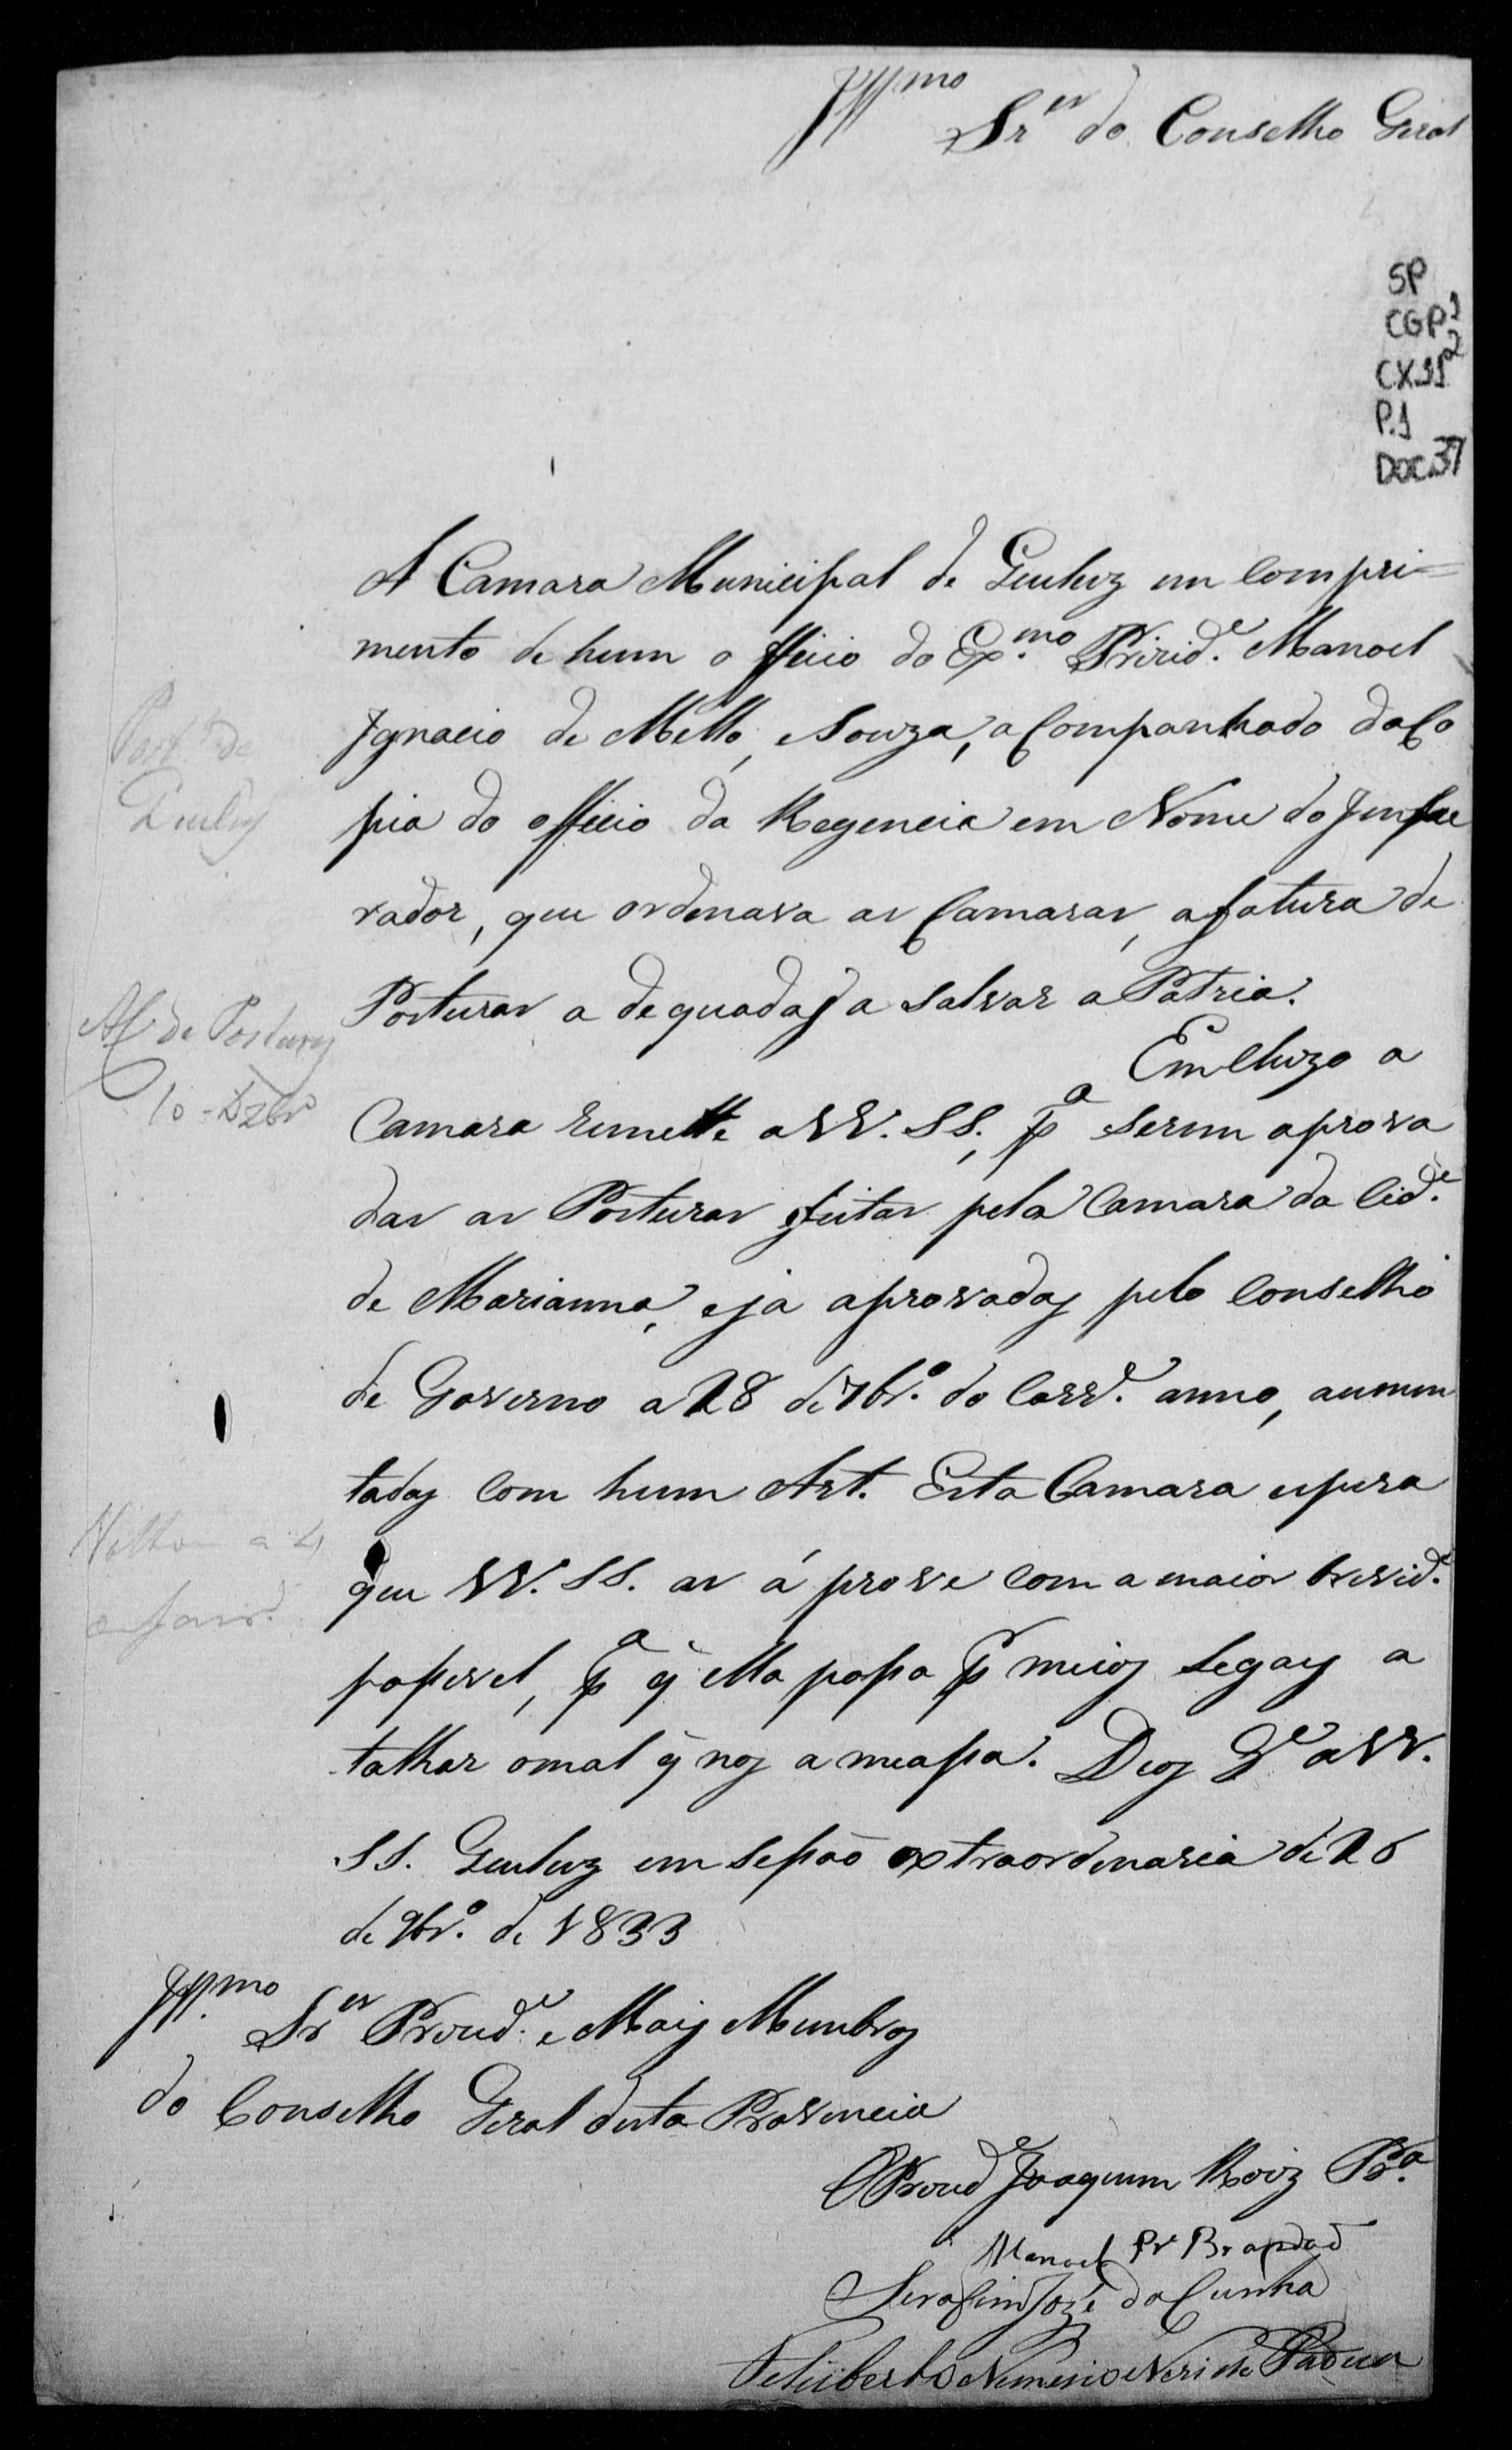 Illmo
Sres do Conselho Geral
SP
CGP1
CX.11 2
P.1
DOC.37
A Camara Municipal de Queluz em Compri=
mento de hum officio do Ex.mo Prizid.e Manoel
Ignacio de Mello, e Souza, aCompanhado da Co
pia do officio da Regencia em Nome do Impe
rador, que ordenava as Camaras, afatura de
Posturas a dequadas a salvar a Patria.
Emcluzo a
Camara remette a VV. SS., pa serem aprova
das as Posturas feitas pela Camara da Cid.e
de Marianna, eja aprovadas pelo Conselho
de Governo a 28 de 7br.o do Corr.e anno, aumen
tadas com hum Art. Esta Camara espera
que VV. SS. as á prove com a maior brevid.e
possivel, pa q̃ ella possa pr meios Legaes a
talhar omal q̃ nos a meassa. Deos Ge a VV.
SS. Queluz em Sessão extraordenaria de 26
de 9br.o de 1833
Illmo
Srs Prezd.e e Mais Membros
do Conselho Geral desta Provincia
Port.as de
Queluz
Á C. de Posturas
10 - Dzbr
Voltou a 4
de Janr.o
O Prezd.e Joaquim Roiz Pra.
Manoel Pr Brandaõ
Serafim José da Cunha
Feliсberto Nemesio Neri de Padua